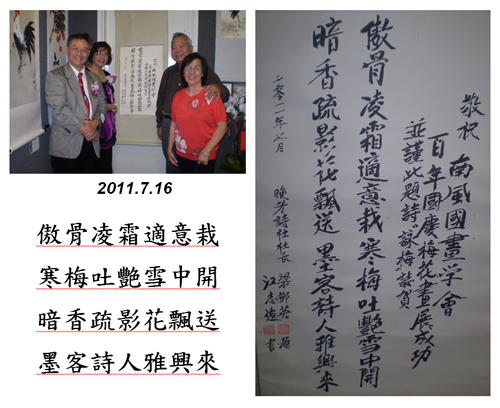 2011.7.16
傲骨凌霜適意栽
寒梅吐艷雪中開
暗香疏影花飄送
墨客詩人雅興來
敬祝
南風國畫学會
百年國慶梅花畫展成功
並謹此題詩“詠梅”誌賀
傲骨凌霜適意栽 寒梅吐艷雪中開
暗香疏影花飄送 墨客詩人雅興來
二零一一年七月
晚芳詩社社長 題
江志遠 書